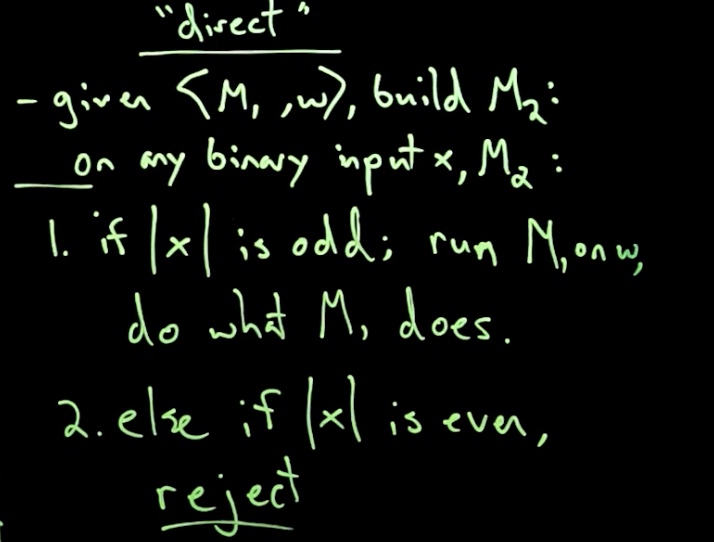 "direct"
- given <M₁, w>, build M₂:
on any binary input x, M₂:
1. if |x| is odd; run M₁ on w,
do what M₁ does.
2. else if |x| is even,
reject